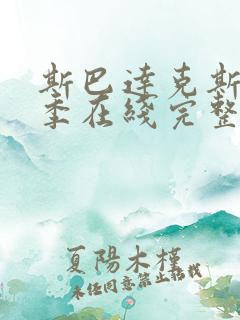 斯巴達克斯
季在綫完整
夏陽木槿
未经同意禁止転載